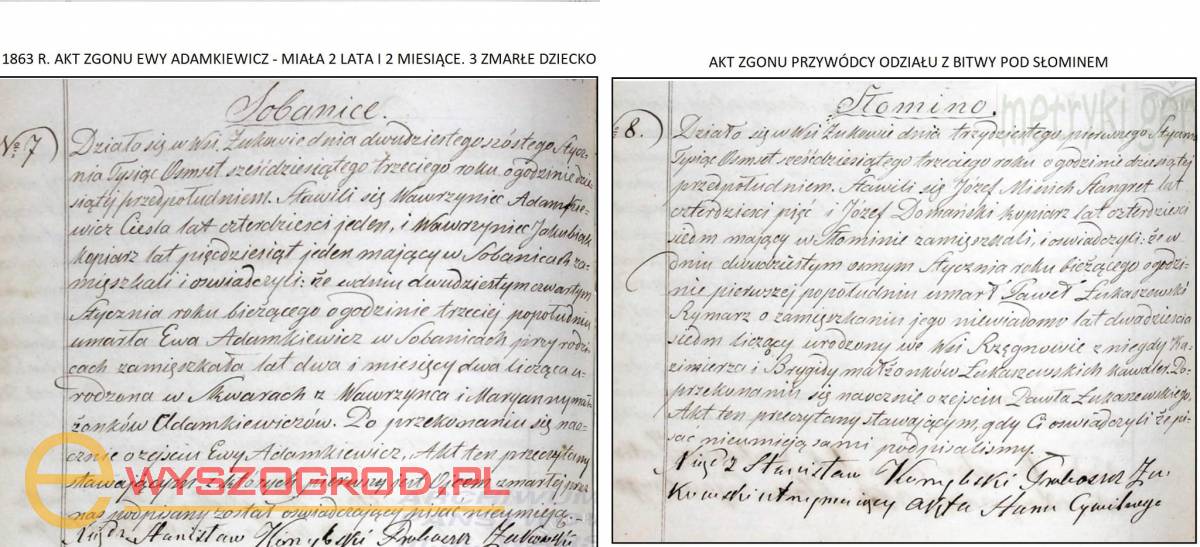 1863 R. AKT ZGONU EWY ADAMKIEWICZ - MIAŁA 2 LATA I 2 MIESIĄCE. 3 ZMARŁE DZIECKO
Sobanice.
No. 7
Działo się w Wsi Żukowie dnia dwudziestego szóstego Stycz-
nia Tysiąc Osmset sześćdziesiątego trzeciego roku o godzinie dzie-
siątej przedpołudniem. Stawili się Wawrzyniec Adamkie-
wicz Ciesla lat czterdziesci jeden, i Wawrzyniec Jakubiak
kopiarz lat pięcdziesiąt jeden mający w Sobanicach za-
mięszkali i oswiadczyli: że w dniu dwudziestym czwartym
Stycznia roku bieżącego o godzinie trzeciej popołudniu
umarła Ewa Adamkiewicz w Sobanicach przy rodzi-
cach zamięszkała lat dwa i miesięcy dwa licząca u-
rodzona w Skwarach z Wawrzynca i Maryanny mał-
żonków Adamkiewiczów. Po przekonaniu się nao-
cznie o zejściu Ewy Adamkiewicz, Akt ten przeczytany
stawającym z których pierwszy jest Ojcem zmarłej prze
nas podpisany został oświadczający pisać nieumieją.-
Xiądz Stanisław Proboszcz Żukowski
eWYSZOGROD.PL
AKT ZGONU PRZYWÓDCY ODZIAŁU Z BITWY POD SŁOMINEM
Słomino.
metryki.gen
8.
Działo się w Wsi Żukowie dnia trzydziestego pierwszego Stycznia
Tysiąc Osmset sześćdziesiątego trzeciego roku o godzinie dziesiątej
przedpołudniem. Stawili się Józef Minich Stangret lat
czterdziesci pięć i Józef Domański kopiarz lat czterdziesci
siedm mający w Słominie zamięszkali, i oswiadczyli: że w
dniu dwudziestym osmym Stycznia roku bieżącego o godzi-
nie pierwszej popołudniu umarł Paweł Łukaszewski
Rymarz o zamięszkaniu jego niewiadomo lat dwadziescia
siedm liczący urodzony we Wsi Rzęgnowie z niegdy Ka-
zimierza i Brygidy małżonków Łukaszewskich kawaler. Po
przekonaniu się naocznie o zejściu Pawła Łukaszewskiego,
Akt ten przeczytany stawającym, gdy Ci oswiadczyli że pi-
sać nieumieją sami podpisalismy.
Xiądz Stanisław Proboszcz Żu-
kowski utrzymujący akta Stanu Cywilnego